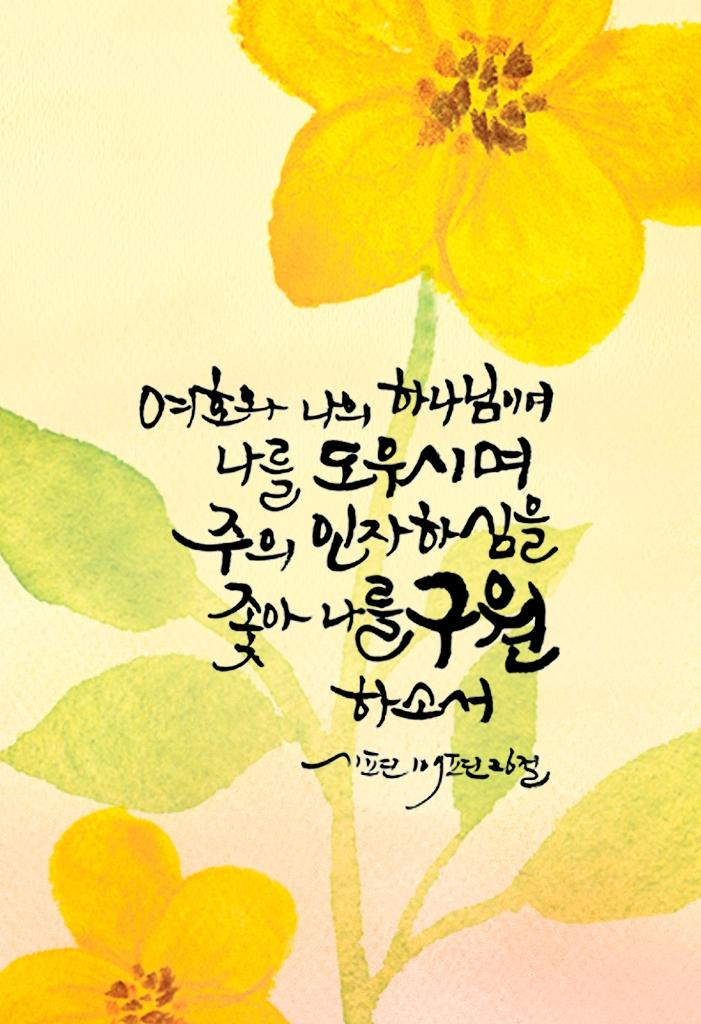 여호와 나의 하나님이여
나를 도우시며
주의 인자하심을
좇아 나를 구원
하소서
시편 109편 26절